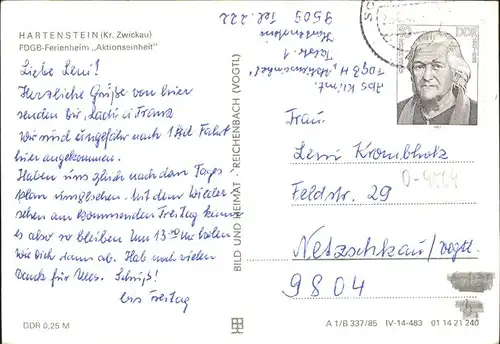 HARTENSTEIN (Kr. Zwickau)
FDGB-Ferienheim „Aktionseinheit"
Liebe Leni!
Herzliche Grüße von hier
senden Dir, Franz
Wir sind ungefähr nach 1 Std Fahrt
hier angekommen.
Haben uns gleich nach dem Tages
plan umgesehen. Mit dem Wieder
sehen am kommenden Freitag kann
es also so bleiben Um 13 00 Uhr holen
wir Dich dann ab. Hab noch vielen
Dank für Alles. Tschüß!
bis Freitag
DDR 0,25 M
BILD UND HEIMAT REICHENBACH (VOGTL)
Abs. Klimt
FDGB H. „Aktionseinheit"
Talstr. 1
Hartenstein
9509 Tel. 222
DDR
Frau
Leni Krombholz
Feldstr. 29
Netzschkau/Vogtl.
9804
A 1/B 337/85 IV-14-483 01 14 21 240